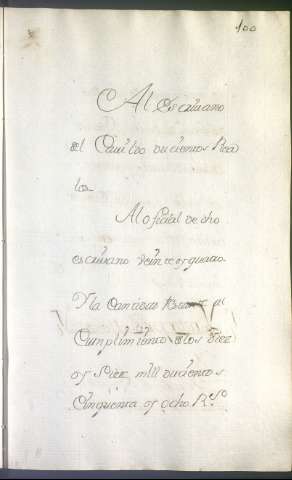 100
Al Escriuano
del Cauildo duçientos Rea
les
Al ofiçial de dho
escriuano Veinte y quatro
Y la Cantidad
Cumplimiento a los diez
y Siete mill duçientos
Cinquenta y ocho R.s